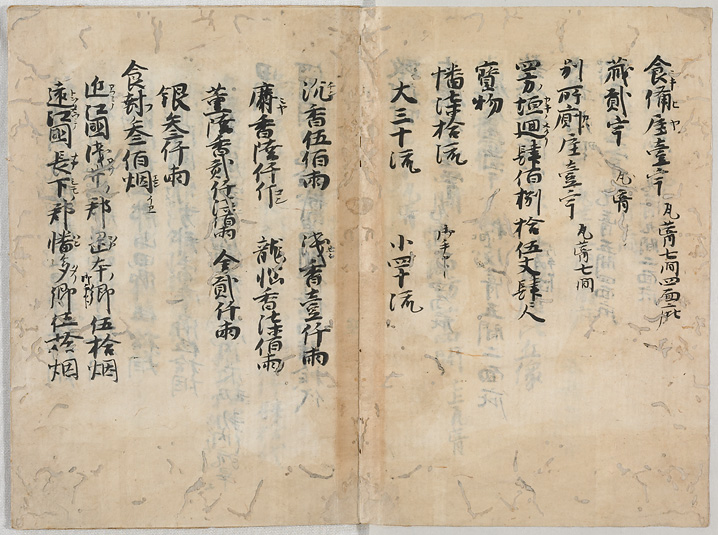 食備屋壹宇 瓦葺七間四面庇
蔵貳宇 瓦葺
別所 屋壹宇 瓦葺七間
四方垣廻肆佰捌拾伍丈肆尺
寶物
幡漆拾流
大三十流 小四十流
沉香伍佰兩 浅香壹仟兩
麝香陸仟 龍脳香漆佰兩
薫陸香貳仟 兩 金貳仟兩
銀叁仟兩
食封叁佰烟
近江國浅井郡 岡本郷伍拾烟
遠江國長下郡幡多郷伍拾烟